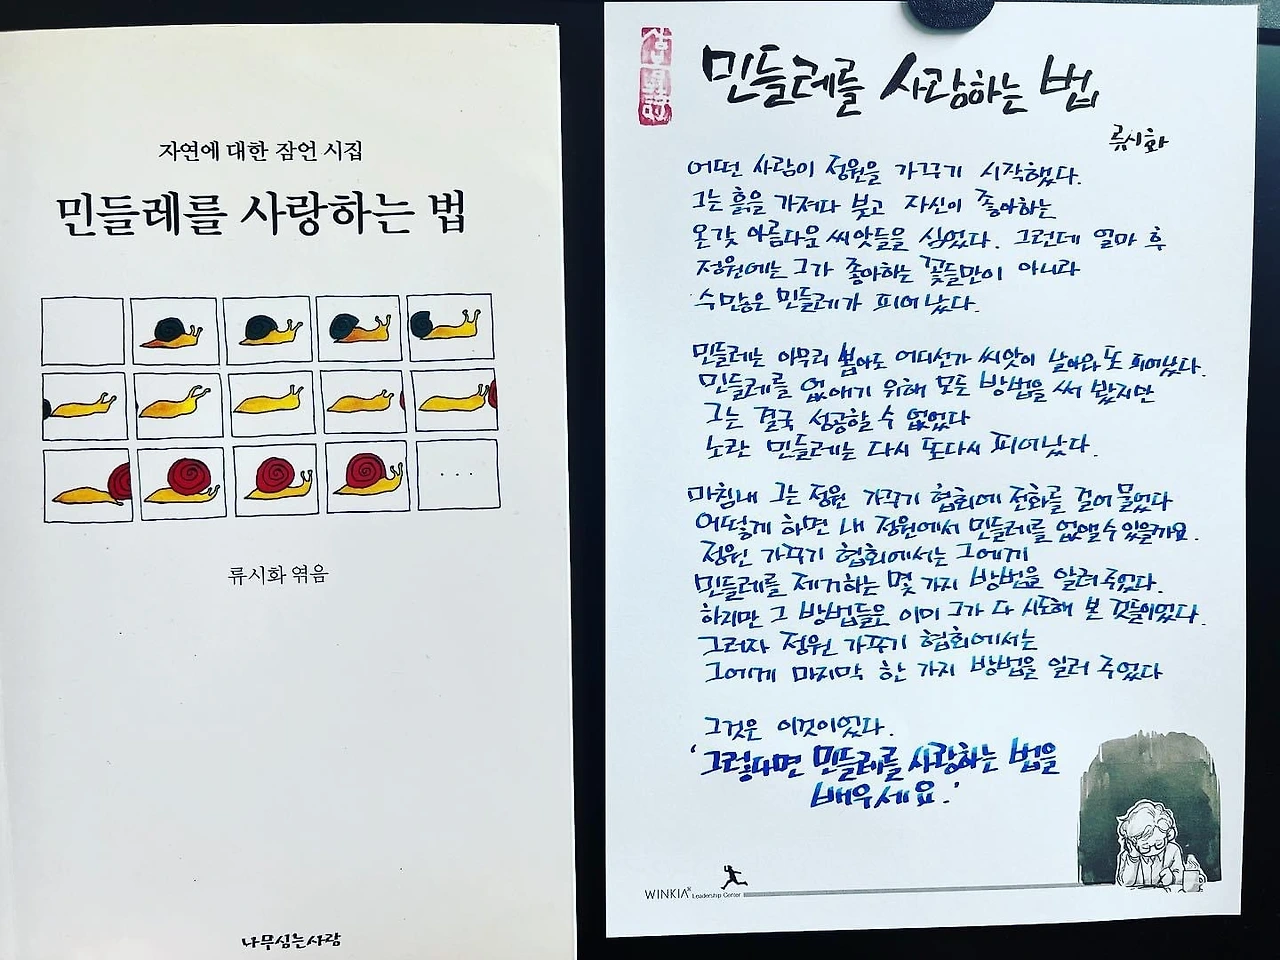 자연에 대한 잠언 시집
민들레를 사랑하는 법
...
류시화 엮음
나무심는사람
민들레를 사랑하는 법
류시화
어떤 사람이 정원을 가꾸기 시작했다.
그는 흙을 가져다 붓고 자신이 좋아하는
온갖 아름다운 씨앗들을 심었다. 그런데 얼마 후
정원에는 그가 좋아하는 꽃들만이 아니라
수많은 민들레가 피어났다.
민들레는 아무리 뽑아도 어디선가 씨앗이 날아와 또 피어났다.
민들레를 없애기 위해 모든 방법을 써 봤지만
그는 결국 성공할 수 없었다
노란 민들레는 다시 또다시 피어났다.
마침내 그는 정원 가꾸기 협회에 전화를 걸어 물었다
어떻게 하면 내 정원에서 민들레를 없앨 수 있을까요.
정원 가꾸기 협회에서는 그에게
민들레를 제거하는 몇 가지 방법을 알려 주었다.
하지만 그 방법들은 이미 그가 다 시도해 본 것들이었다.
그러자 정원 가꾸기 협회에서는
그에게 마지막 한 가지 방법을 일러 주었다
그것은 이것이었다.
'그렇다면 민들레를 사랑하는 법을
배우세요.'
WINKIA Leadership Center